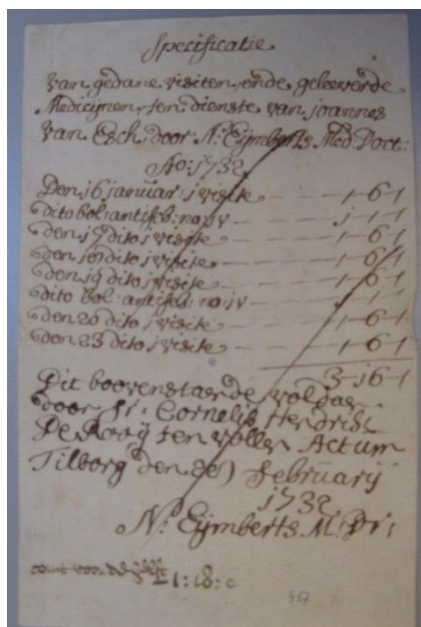 Specificatie
van gedane visiten, ende geleeverde
Medicijnen, ten dienste van joannes
van Esch door N: Eijmberts Med: Doct:
Ao: 1732
Den 16 januar: 1 visite — 1-6-1
dito bol: antifeb: no: jv — 1-
den 17 dito 1 visite — 1-6-1
den 18 dito 1 visite — 1-6-1
den 19 dito 1 visite — 1-6-1
dito bol: antifeb: no: jv — 1-
den 20 dito 1 visite — 1-6-1
den 23 dito 1 visite — 1-6-1
3-16-1
Dit boovenstaende voldaen
door Sr: Cornelis Hendrick
De Rooij ten vollen Actum
Tilborg den februarij
1732
N: Eijmberts M: Dr:
1:18:0